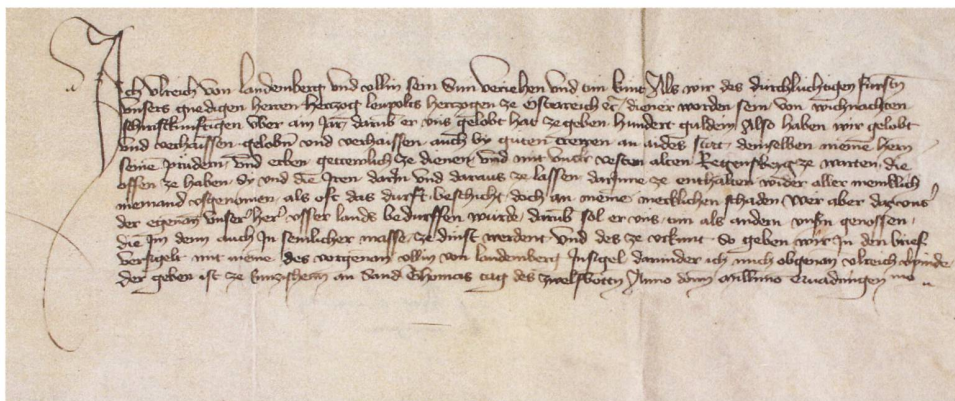 Ich Ulreich von Landemberg und Ullin sein Sun veriehen und tun kunt Als wir des durchluchtigen fursten
unsers gnedigen herren hertzog Leupolts hertzogen ze Osterreich etc diener worden sein von wichnachten
schirstkunftigen uber ain Jar darub er uns gelobt hat ze geben hundert guldein Also haben wir gelobt
und verhaissen geloben und verhaissen auch by guten trewen an aides stat demselben meinem hern
seinen prudern und erben getrewlich ze dienen und mit unser vesten alten Regensperg ze warten die
offen ze haben Sy und die Iren darin und daraus ze lassen darinne ze enthalten wider aller menklich
niemand usgenomen als oft das durft beschicht doch an meine merklichen schaden Wer aber daz uns
der egenan unser her usser lands bedurffen wurde darub sol er uns tun als andern unsern genossen
die Im denn auch In semlicher masse ze dinst werdent Und des ze urkunt So geben wir In den brief
versigelt mit meine des vorgenan Ullin von Landemberg Insigel darunder ich mich obgenan Ulreich pinde
der geben ist ze Ensishein an Sand Thomas tag des zwelfbotten Anno domini millesimo